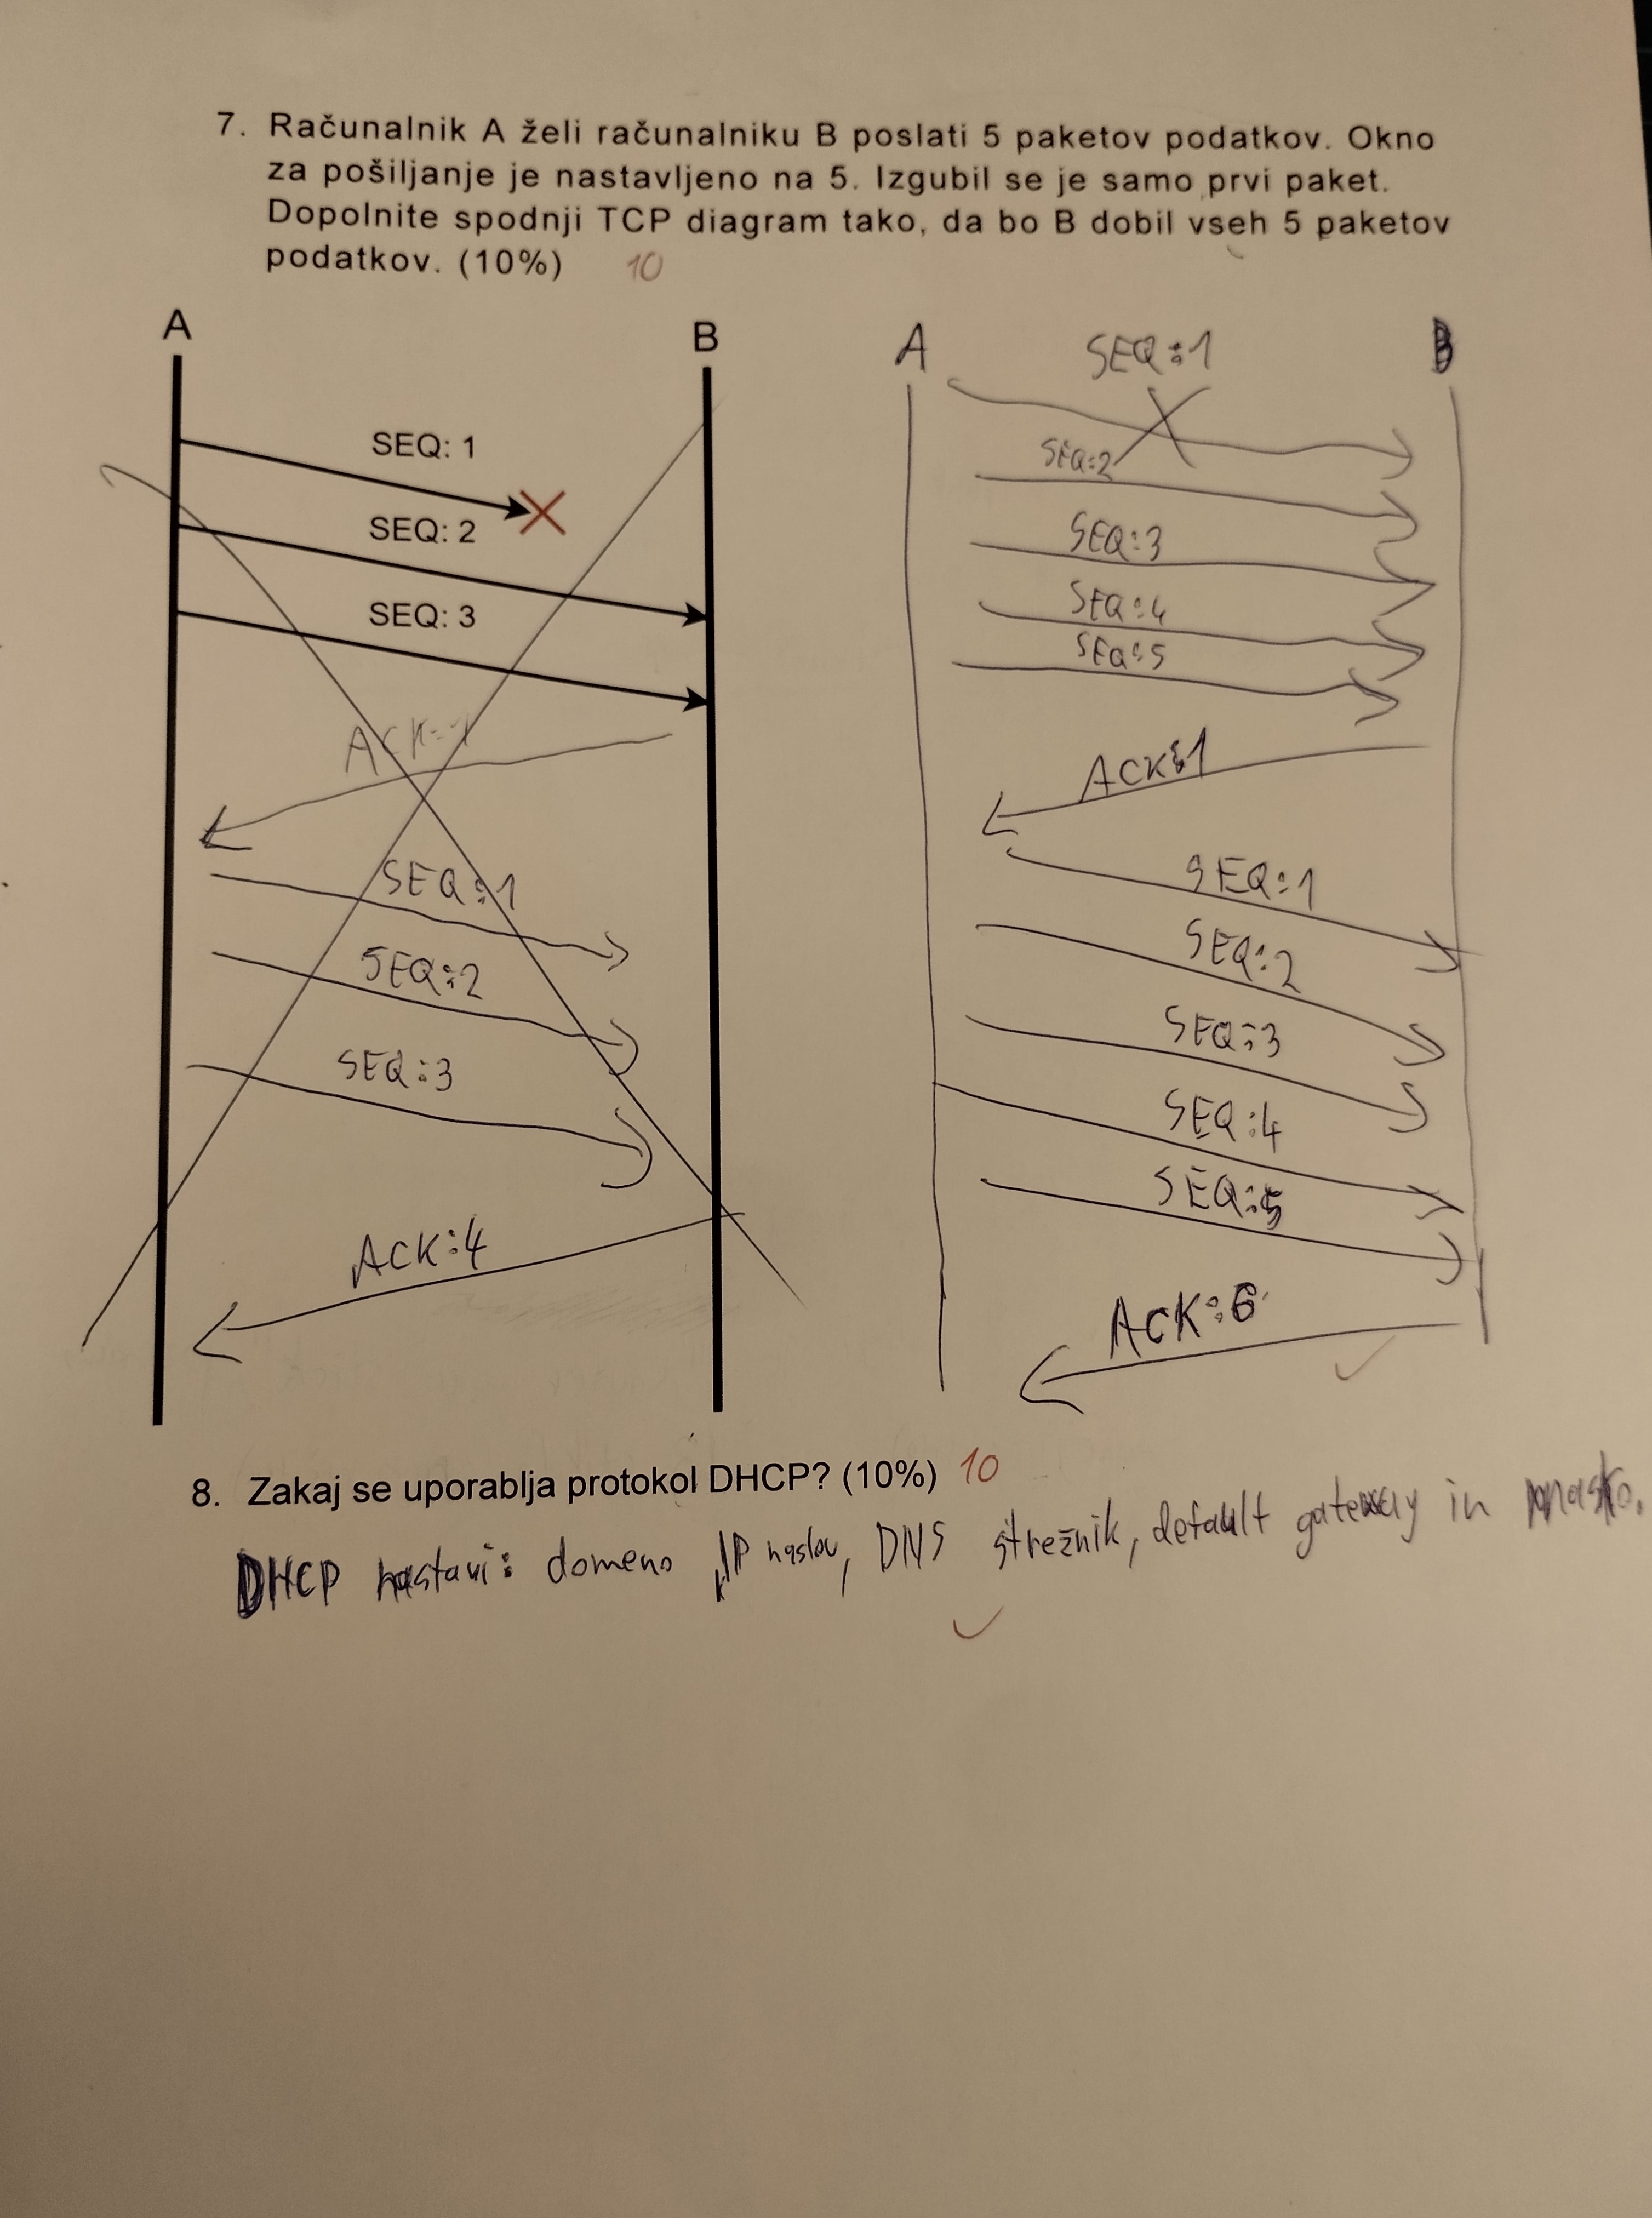 7. Računalnik A želi računalniku B poslati 5 paketov podatkov. Okno
za pošiljanje je nastavljeno na 5. Izgubil se je samo prvi paket.
Dopolnite spodnji TCP diagram tako, da bo B dobil vseh 5 paketov
podatkov. (10%) 10
A B
SEQ: 1
SEQ: 2
SEQ: 3
ACK:1
SEQ:1
SEQ:2
SEQ:3
ACK:4
A B
SEQ:1
SEQ:2
SEQ:3
SEQ:4
SEQ:5
ACK:1
SEQ:1
SEQ:2
SEQ:3
SEQ:4
SEQ:5
ACK:6
8. Zakaj se uporablja protokol DHCP? (10%) 10
DHCP nastavi: domeno IP naslov, DNS strežnik, default gateway in masko.